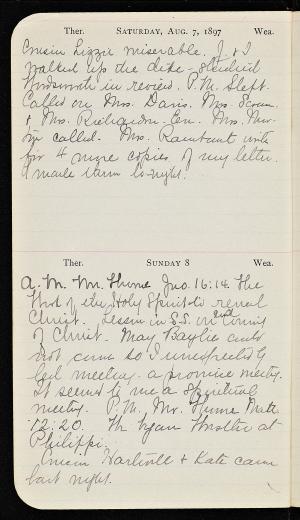 Ther. SATURDAY, AUG. 7, 1897 Wea.
Cousin Lizzie miserable. J. & I
walked up the dike - studied
Wordsworth in revised. P.M. Slept.
Called on Mrs. Davis. Mrs.
& Mrs. Richardson. Eve. Mrs.
called. Mrs. Rambaut wants
for 4 more copies of my letter.
I made them to-night.
Ther. SUNDAY 8 Wea.
A.M. Mr. Hume Jno. 16:14. The
Work of the Holy Spirit to reveal
Christ. Lesson in S.S. on 2nd Coming
of Christ. May Baylie could
not come so I unexpectedly
led meeting. a promise meeting.
It seemed to me a spiritual
meeting. P.M. Mr. Hume Matt.
12:20. The
Philippi.
Cousin Hartwell & Kate came
last night.